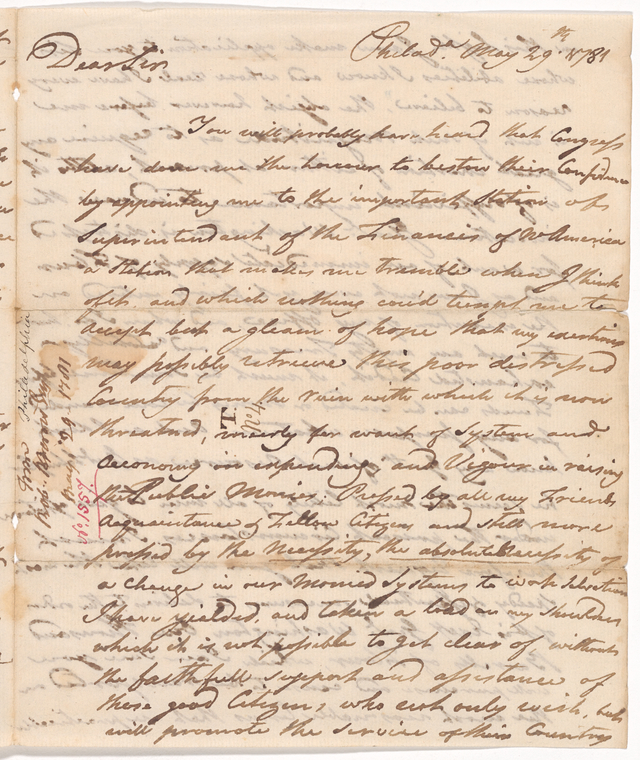 Philada. May 29th 1781
Dear Sir
You will probably have heard that Congress
have done me the honour to bestow their Confidence
by appointing me to the important Station of
Superintendant of the Finances of No America
a station that makes me tramble when I think
of it and which nothing cou'd tempt me to
accept but a gleam of hope that my exertions
may possibly retrieve this poor distressed
Country from the ruin with which it is now
threatned, merely for want of System and
oeconomy in expending, and Vigour in raising
the Public Monies. Pressed by all my Friends
acquaintance & Fellow Citizens and still more
pressed by the Necessity, the absolute Necessity of
a change in our Monied Systems to work Salvation
I have yielded, and taken a load on my Shoulders
which it is not possible to get clear of without
the faithfull support and assistance of
those good Citizens, who not only wish, but
will promote the Service of their Country
From Philadelphia
May 29 1781